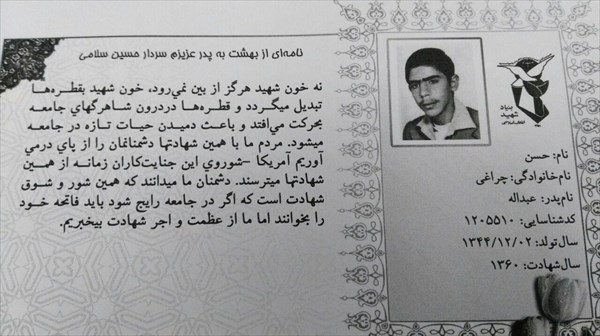 نامه‌ای از بهشت به پدر عزیزم سردار حسین سلامی
نه خون شهید هرگز از بین نمي‌رود، خون شهید بقطره‌ها
تبدیل میگردد و قطره‌ها دردرون شاهرگهاي جامعه
بحرکت مي‌افتد و باعث دمیدن حیات تازه در جامعه
میشود. مردم ما با همین شهادتها دشمنانمان را از پاي درمي
آوریم آمریکا -شوروي این جنایت‌کاران زمانه از همین
شهادتها میترسند. دشمنان ما میدانند که همین شور و شوق
شهادت است که اگر در جامعه رایج شود باید فاتحه خود
را بخوانند اما ما از عظمت و اجر شهادت بیخبریم.
بنیاد
شهید
نام: حسن
نام‌خانوادگی: چراغی
نام‌پدر: عبداله
کدشناسایی: ۱۲۰۵۵۱۰
سال‌تولد: ۱۳۴۴/۱۲/۰۲
سال‌شهادت: ۱۳۶۰